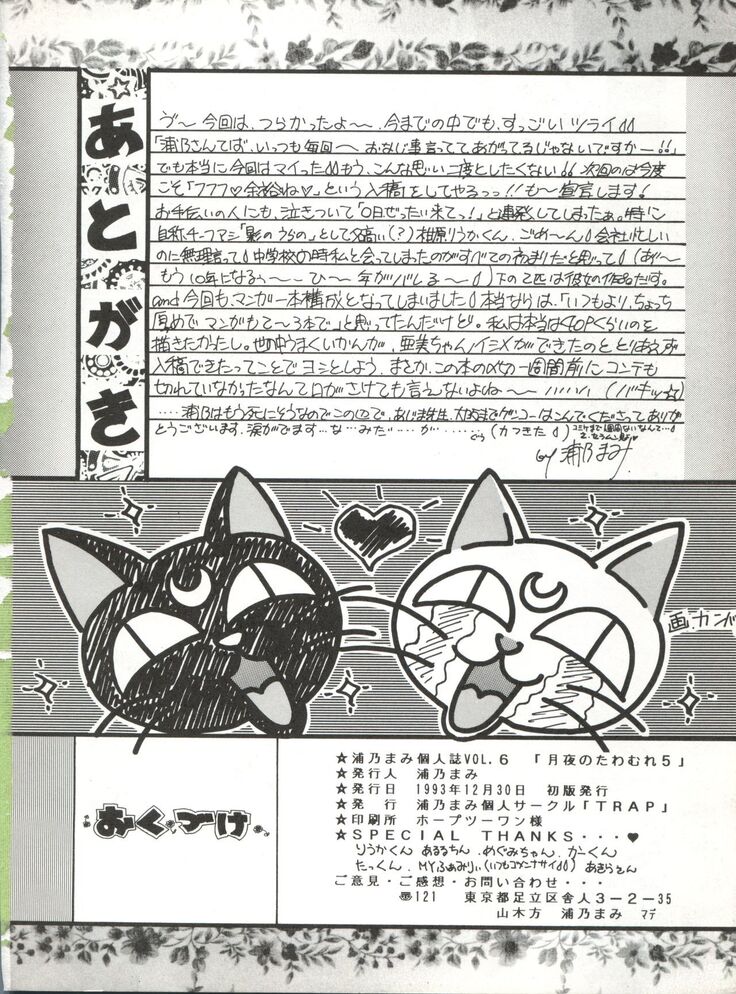 あとがき
ヴ〜今回は、つらかったよ〜、今までの中でも、すっごいツライ
「浦乃さんてば、いっつも毎回〜おなじ事言ってて あがってるじゃないですかー!!」
でも本当に今回はマイった もう、こんな思い二度としたくない 次回のは今度
こそ「フフフ♡余裕ね♡」という入稿をしてやるっっ!!も〜宣言します!
お手伝いの人にも、泣きついて「〇日ぜったい来てっ!」と連発してしまったぁ。特に
自称チーフアシ「影のうらの」として名高い(?)相原りうかくん、ごめ〜ん 会社忙しい
のに無理言って 中学校の時私と会ってしまったのがすべての始まりだと思って (あ〜
もう10年になるぅ〜〜ひ〜年がバレる〜)下の2匹は彼女の作品だす。
and今回も、マンガ一本構成となってしまいました 本当ならば、「いつもより、ちょっち
厚めでマンガもて〜3本で」と思ってたんだけど。私は本当は40Pくらいのを
描きたかったし。世の中うまくいかんが、亜美ちゃんメインメがができたのととりあえず
入稿できたってことでヨシとしよう。まさか、この本の〆切一週間前にコンテも
切れていなかったなんて口がさけても言えないよね〜〜ハハハハ (バキッ☆)
‥‥浦乃はもう死にそうなのでこの辺で、あじま先生、大阪までゲンコーはこんでくださってありが
とうございます。涙がでます‥な‥みだ‥‥が‥‥‥ (力つきた)
by 浦乃まみ
画・カンバ
おくづけ
★浦乃まみ個人誌VOL.6 「月夜のたわむれ5」
★発行人 浦乃まみ
★発行日 1993年12月30日 初版発行
★発 行 浦乃まみ個人サークル「TRAP」
★印刷所 ホープツーワン様
★SPECIAL THANKS・・・♥
りうかくん あるるちん、めぐみちゃん、かーくん
たっくん、MYふぁみりぃ(いつもゴメンナサイ) あきらさん
ご意見・ご感想・お問い合わせ・・・
〠121 東京都足立区舎人3-2-35
山木方 浦乃まみ マデ